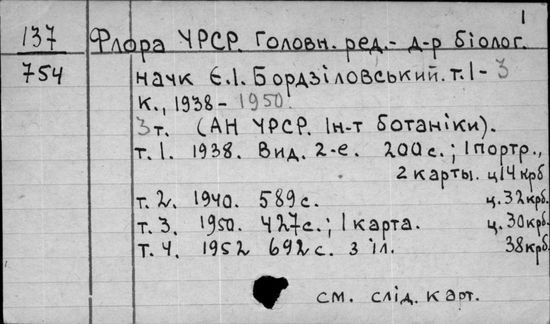 1
137 Флора УРСР. Головн. ред.- д-р біолог.
754 наук Є.І. Бордзіловський. т.1-3
К., 1938-1950.
3т. (АН УРСР. Ін-т ботаніки).
т.1. 1938. Вид. 2-е. 200с.; 1портр.,
2 карты. ц.14крб
т.2. 1940. 589с. ц.32крб.
т.3. 1950. 427с.; 1 карта. ц.30крб.
т.4. 1952 692с. з іл. 38крб.
см. слід. карт.